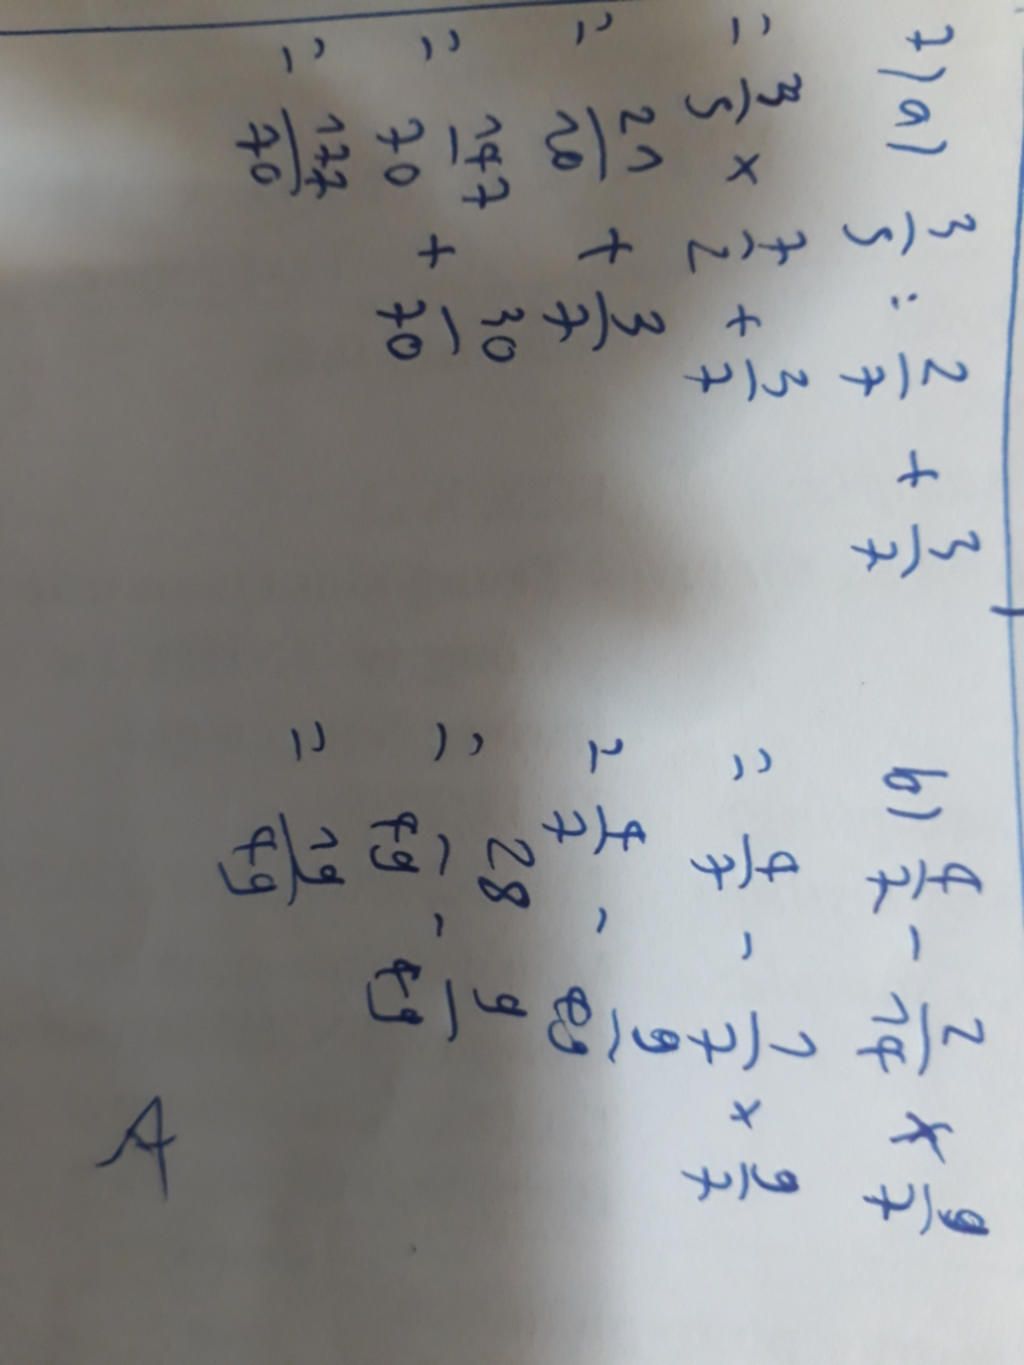 7) a) 3/5 : 2/7 + 3/7
= 3/5 x 7/2 + 3/7
= 21/10 + 3/7
= 147/70 + 30/70
= 177/70
b) 4/7 - 2/14 x 9/7
= 4/7 - 1/7 x 9/7
= 4/7 - 9/49
= 28/49 - 9/49
= 19/49
A